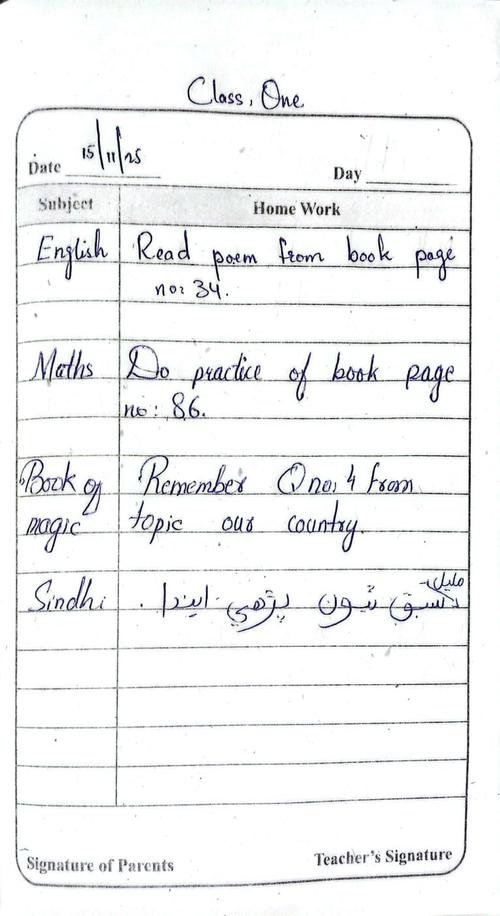 Class, One
Date 15/11/25
Day
Subject Home Work
English Read poem from book page
no: 34.
Maths Do practice of book page
no: 86.
Book of Remember Q no: 4 from
magic topic our country.
مليل
Sindhi سبق تيون پڙهي ايندا.
Signature of Parents Teacher's Signature